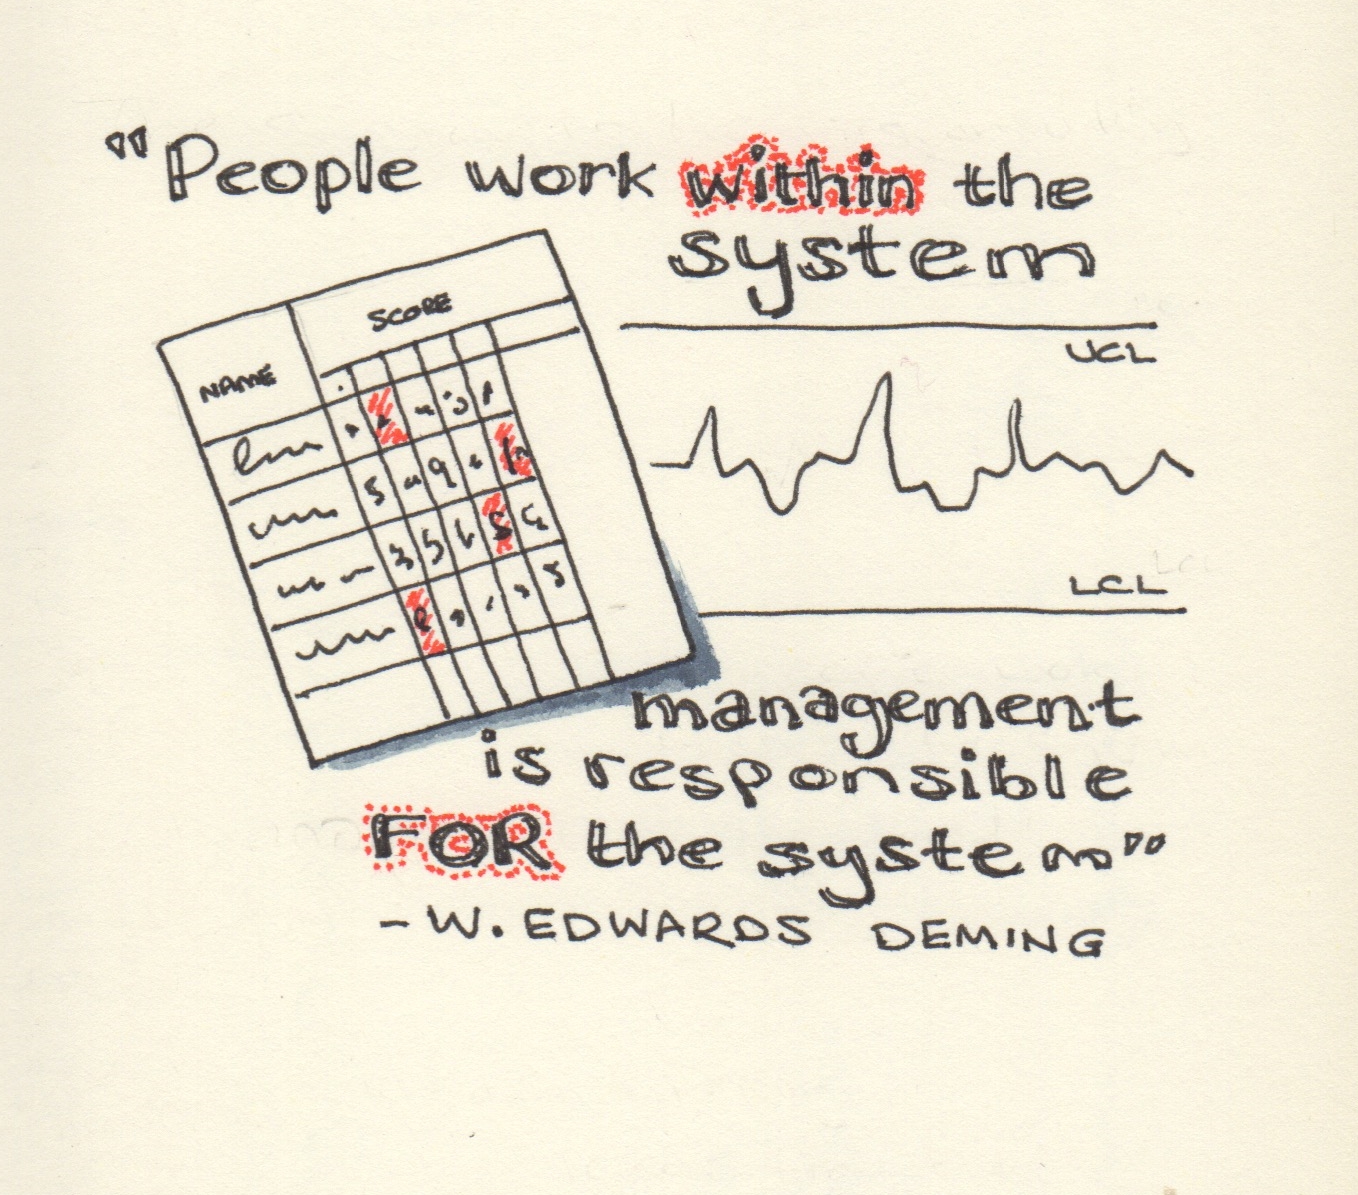 "People work within the
system
SCORE
NAME
UCL
LCL
management
is responsible
FOR the system"
- W. EDWARDS DEMING